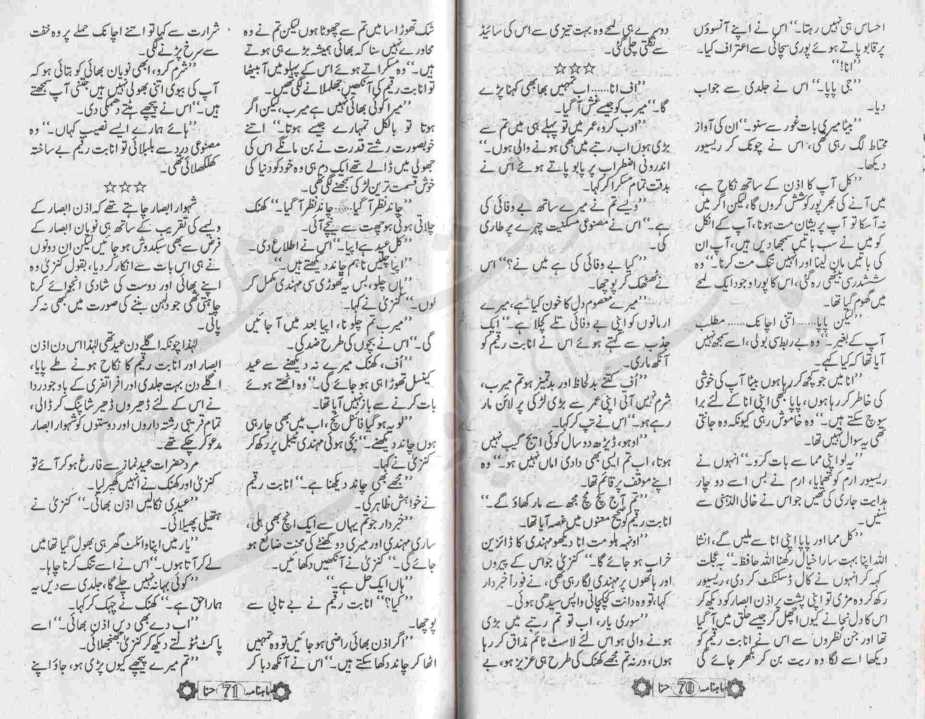 احساس ہی نہیں رہتا۔‘‘ اس نے اپنے آنسوؤں
پر قابو پاتے ہوئے پوری سچائی سے اعتراف کیا۔
’’انا!‘‘
’’جی پاپا۔‘‘ اس نے جلدی سے جواب
دیا۔
’’بیٹا میری بات غور سے سنو۔‘‘ ان کی آواز
محتاط لگ رہی تھی، اس نے چونک کر ریسیور
دیکھا۔
’’کل آپ کا اذن کے ساتھ نکاح ہے،
میں آنے کی بھرپور کوشش کروں گا، لیکن اگر میں
نہ آ سکا تو آپ پریشان مت ہونا، آپ کے انکل
کو میں نے سب باتیں سمجھا دیں ہیں، آپ ان
کی باتیں مان لینا اور انہیں تنگ مت کرنا۔‘‘ وہ
ششدر سی بیٹھی رہ گئی، اس کا پورا وجود ایک لمحے
میں گھوم گیا تھا۔
’’لیکن پاپا...... اتنی اچانک...... مطلب
آپ کے بغیر۔‘‘ وہ بے ربط سی بولی، اسے سمجھ نہیں
آیا تھا کہ کیا کہے۔
’’انا میں جو کچھ کر رہا ہوں بیٹا آپ کی خوشی
کی خاطر کر رہا ہوں، پاپا بھی اپنی انا کے لئے برا
سوچ سکتے ہیں۔‘‘ وہ خاموش رہی کیونکہ وہ جانتی
تھی یہ سوال نہیں تھا۔
’’یہ لو اپنی مما سے بات کرو۔‘‘ انہوں نے
ریسیور ارم کو تھمایا، ارم نے بس اسے دو چار
ہدایت جاری کی تھیں جو اس نے خالی الذہنی سے
سنیں۔
’’کل مما اور پاپا اپنی انا سے ملیں گے، انشا
اللہ اپنا بہت سارا خیال رکھنا اللہ حافظ۔‘‘ بہ عجلت
کہہ کر انہوں نے کال ڈسکنکٹ کر دی، ریسیور
رکھ کر وہ مڑی تو اپنی پشت پر اذن ابصار کو دیکھ کر
اس کا دل نجانے کیوں اچھل کر جیسے حلق میں آ گیا
تھا اور جن نظروں سے اس نے انابت رقیم کو
دیکھا اسے لگا وہ ریت بن کر بکھر جائے گی
دوسرے ہی لمحے وہ بہت تیزی سے اس کی سائیڈ
سے نکلتی چلی گئی۔
☆☆☆
’’اف انا...... اب تمہیں بھابھی کہنا پڑے
گا۔‘‘ میرب کو جیسے غش آ گیا۔
’’ادب کرو، عمر میں تو پہلے ہی میں تم سے
بڑی ہوں اب رتبے میں بھی ہونے والی ہوں۔‘‘
اندرونی اضطراب پر قابو پاتے ہوئے اس نے
بدقت تمام مسکرا کر کہا۔
’’ویسے تم نے میرے ساتھ بے وفائی کی
ہے۔‘‘ اس نے مصنوعی مسکینیت چہرے پر طاری
کی۔
’’کیا بے وفائی کی ہے میں نے؟‘‘ اس
نے ٹھٹھک کر پوچھا۔
’’میرے معصوم دل کا خون کیا ہے، میرے
ارمانوں کو اپنی بے وفائی تلے کچلا ہے۔‘‘ ایک
جذب سے کہتے ہوئے اس نے انابت رقیم کو
آنکھ ماری۔
’’اُف کتنے بدلحاظ اور بدتمیز ہو تم میرب،
شرم نہیں آتی اپنی عمر سے بڑی لڑکی پر لائن مار
رہے ہو۔‘‘ اس نے تپ کر کہا۔
’’اوہو، ڈیڑھ دو سال کوئی ایج گیپ نہیں
ہوتا، اب تم ایسی بھی دادی اماں نہیں ہو۔‘‘ وہ
اپنے موقف پر قائم تھا۔
’’تم آج سچ مچ مجھ سے مار کھاؤ گے۔‘‘
انابت رقیم کو صحیح معنوں میں غصہ آیا تھا۔
’’اونہہ ہلو مت انا دیکھو مہندی کا ڈائزین
خراب ہو جائے گا۔‘‘ کنزئی جو اس کے پیروں
اور ہاتھوں پر مہندی لگا رہی تھی، نے فوراً خبردار
کہا، تو وہ دانت کچکچاتی واپس سیدھی ہوئی۔
’’سوری یار، اب تو تم رتبے میں بڑی
ہونے والی ہو اس لئے لاسٹ ٹائم مذاق کر رہا
ہوں، ورنہ تم مجھے کھنک کی طرح ہی عزیز ہو، بے
ماہنامہ حنا 70
شک تھوڑا سا میں تم سے چھوٹا ہوں لیکن تم نے وہ
محاورے نہیں سنا کہ بھائی ہمیشہ بڑے ہی ہوتے
ہیں۔‘‘ وہ مسکراتے ہوئے اس کے پہلو میں آ بیٹھا
تو انابت رقیم کی آنکھیں جھلملانے لگی تھیں۔
’’میرا کوئی بھائی نہیں ہے میرب، لیکن اگر
ہوتا تو بالکل تمہارے جیسے ہوتا۔‘‘ اتنے
خوبصورت رشتے قدرت نے بن مانگے اس کی
جھولی میں ڈالے تھے ایک دم ہی وہ خود کو دنیا کی
خوش قسمت ترین لڑکی سمجھنے لگی تھی۔
’’چاند نظر آ گیا...... چاند نظر آ گیا۔‘‘ کھنک
چلاتی ہوئی ہو چھت سے نیچے آئی۔
’’کل عید ہے اپیا۔‘‘ اس نے اطلاع دی۔
’’اپیا چلیں نا ہم چاند دیکھتے ہیں۔‘‘
’’ہاں چلو، بس یہ تھوڑی سی مہندی مکمل کر
لوں۔‘‘ کنزئی نے کہا۔
’’میرب تم چلو نا، اپیا بعد میں آ جائیں
گی۔‘‘ اس نے بچوں کی طرح ضد کی۔
’’اُف، کھنک میرے نہ دیکھنے سے عید
کینسل تھوڑا ہی ہو جائے گی۔‘‘ وہ اٹھتے ہوئے
بات کرنے سے باز نہیں آیا تھا۔
’’لو یہ ہو گیا فائنل ٹچ، اب میں بھی جا رہی
ہوں چاند دیکھنے۔‘‘ بچی ہوئی مہندی ٹیبل پر رکھ کر
کنزئی نے کہا۔
’’مجھے بھی چاند دیکھنا ہے۔‘‘ انابت رقیم
نے خواہش ظاہر کی۔
’’خبردار جو تم یہاں سے ایک انچ بھی ہلی،
ساری مہندی اور میری دو گھنٹے کی محنت ضائع ہو
جائے گی۔‘‘ کنزئی نے آنکھیں دکھائیں۔
’’ہاں ایک حل ہے۔‘‘
’’کیا؟‘‘ انابت رقیم نے بے تابی سے
پوچھا۔
’’اگر اذن بھائی راضی ہو جائیں تو وہ تمہیں
اٹھا کر چاند دکھا سکتے ہیں۔‘‘ اس نے آنکھ دبا کر
شرارت سے کہا تو اتنے اچانک حملے پر وہ خفت
سے سرخ پڑنے لگی۔
’’شرم کرو، ابھی ثوبان بھائی کو بتاتی ہو کہ
آپ کی بیوی اتنی بھولی نہیں ہیں جتنی آپ سمجھتے
ہیں۔‘‘ اس نے پیچھے ہٹتے دھمکی دی۔
’’ہائے ہمارے ایسے نصیب کہاں۔‘‘ وہ
مصنوعی درد سے بلبلائی تو انابت رقیم بے ساختہ
کھلکھلائی تھی۔
☆☆☆
شہوار ابصار چاہتے تھے کہ اذن ابصار کے
ولیمے کی تقریب کے ساتھ ہی ثوبان ابصار کے
فرض سے بھی سبکدوش ہو جائیں لیکن ان دونوں
نے ہی اس بات سے انکار کر دیا، بقول کنزئی وہ
اپنے بھائی اور دوست کی شادی انجوائے کرنا
چاہتی تھی جو دلہن بننے کی صورت میں بھی نہ کر
پاتی۔
لہٰذا چونکہ اگلے دن عید تھی لہٰذا اس دن اذن
ابصار اور انابت رقیم کا نکاح ہونے طے پایا،
اگلے دن بہت جلدی اور افراتفری کے باوجود ردا
نے اس کے لئے ڈھیروں ڈھیر شاپنگ کر ڈالی،
تمام قریبی رشتہ داروں اور دوستوں کو شہوار ابصار
مدعو کر چکے تھے۔
مرد حضرات عید نماز سے فارغ ہو کر آئے تو
کنزئی اور کھنک نے انہیں گھیر لیا۔
’’عیدی نکالیں اذن بھائی۔‘‘ کنزئی نے
ہتھیلی پھیلائی۔
’’یار میں اپنا والٹ گھر ہی بھول گیا تھا میں
لے کر آتا ہوں۔‘‘ اس نے اسے تنگ کرنا چاہا۔
’’کوئی بہانہ نہیں چلے گا، جلدی سے دیں یہ
ہمارا حق ہے۔‘‘ کھنک نے چہک کر کہا۔
’’اب دے بھی دیں اذن بھائی۔‘‘ اسے
پاکٹ ٹٹولتے دیکھ کر کنزئی جھنجھلائی۔
’’تم میرے پیچھے کیوں پڑی ہو، جاؤ اپنے
ماہنامہ حنا 71